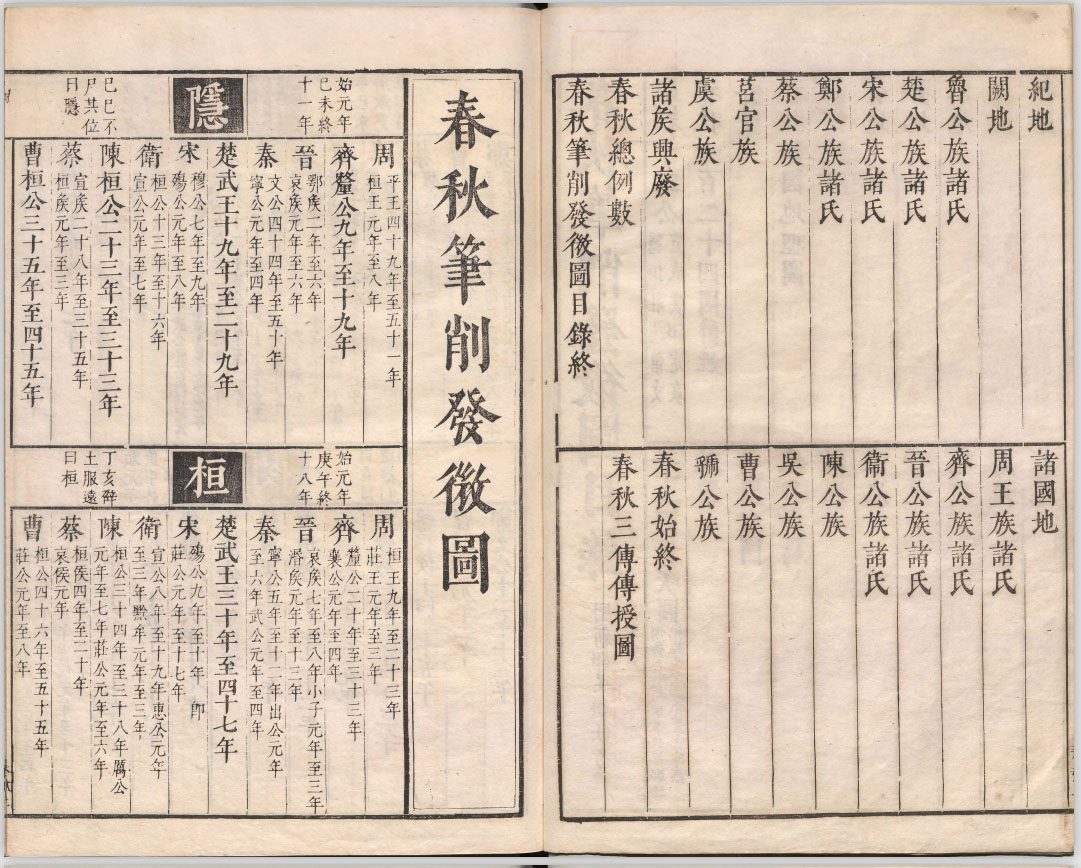 紀地
闕地
魯公族諸氏
楚公族諸氏
宋公族諸氏
鄭公族諸氏
蔡公族
莒官族
虞公族
諸矦興廢
春秋總例數
春秋筆削發微圖目錄終
諸國地
周王族諸氏
齊公族諸氏
晉公族諸氏
衞公族諸氏
陳公族
吳公族
曹公族
虢公族
春秋始終
春秋三傳傳授圖
春秋筆削發微圖
始元年
己未終
十一年
隱
已巳不
尸其位
曰隱
周
平王四十九年至五十一年
桓王元年至八年
齊釐公九年至十九年
晉
鄂矦二年至六年
哀矦元年至六年
秦
文公四十四年至五十年
寧公元年至四年
楚武王十九年至二十九年
宋
穆公七年至九年
殤公元年至八年
衛
桓公十三年至十六年
宣公元年至七年
陳桓公二十三年至三十三年
蔡
宣矦二十八年至三十五年
桓矦元年至三年
曹桓公三十五年至四十五年
始元年
庚午終
十八年
桓
丁亥辟
土服遠
曰桓
周
桓王九年至二十三年
莊王元年至三年
齊
釐公二十年至三十三年
襄公元年至四年
晉
哀矦七年至八年小子元年至三年
潛矦元年至十三年
秦
寧公五年至十二年出公元年
至六年武公元年至四年
楚武王三十年至四十七年
宋
殤公九年至十年 卽
莊公元年至十七年
衛
宣公八年至十九年惠公元年
至三年黔牟元年至三年
陳
桓公三十四年至三十八年厲公
元年至七年莊公元年至六年
蔡
桓侯四年至二十年
哀侯元年
曹
桓公四十六年至五十五年
莊公元年至八年